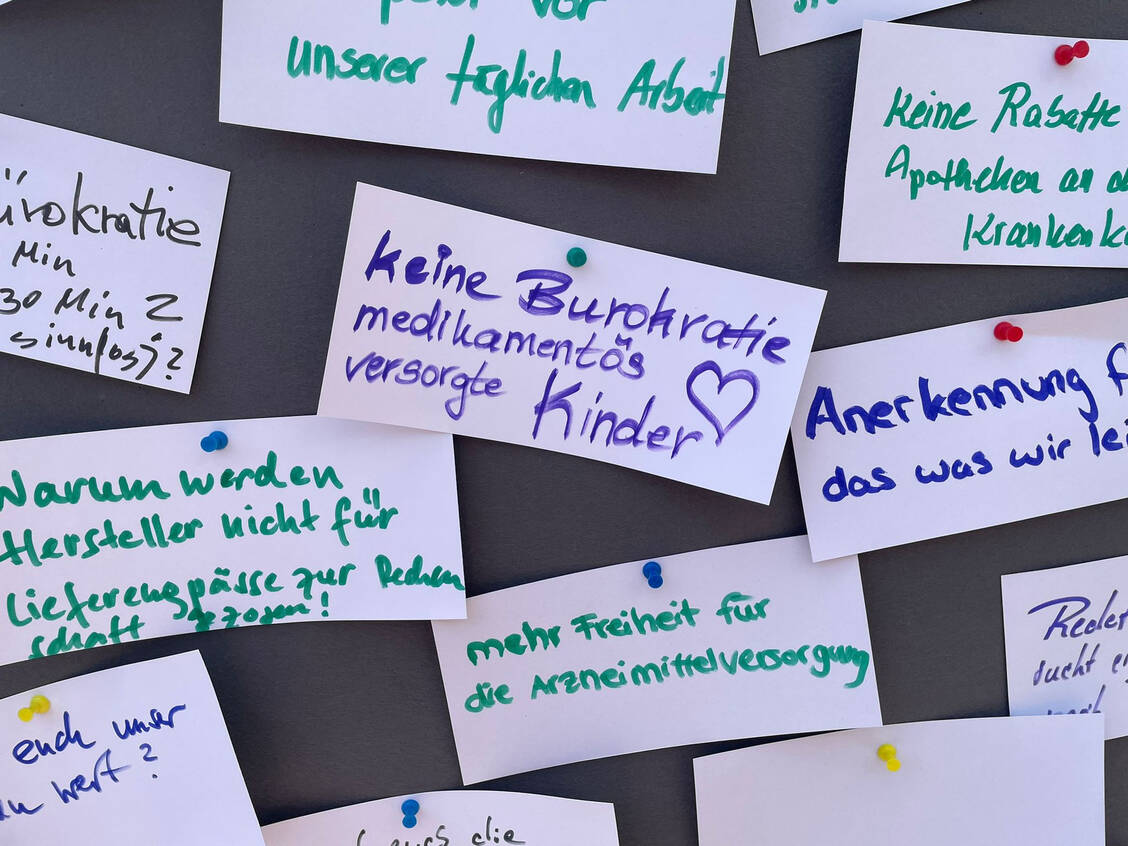 unserer täglichen Arbeit
keine Rabatte
Apotheken an
Bürokratie
Min
30 Min
sinnlos)?
keine Burokratie
medikamentös
versorgte Kinder
Anerkennung
das was wir
Warum werden
Hersteller nicht für
Lieferengpässe zur Rechen
schaft gezogen!
mehr Freiheit für
die Arzneimittelversorgung
euch unser
wert?
die